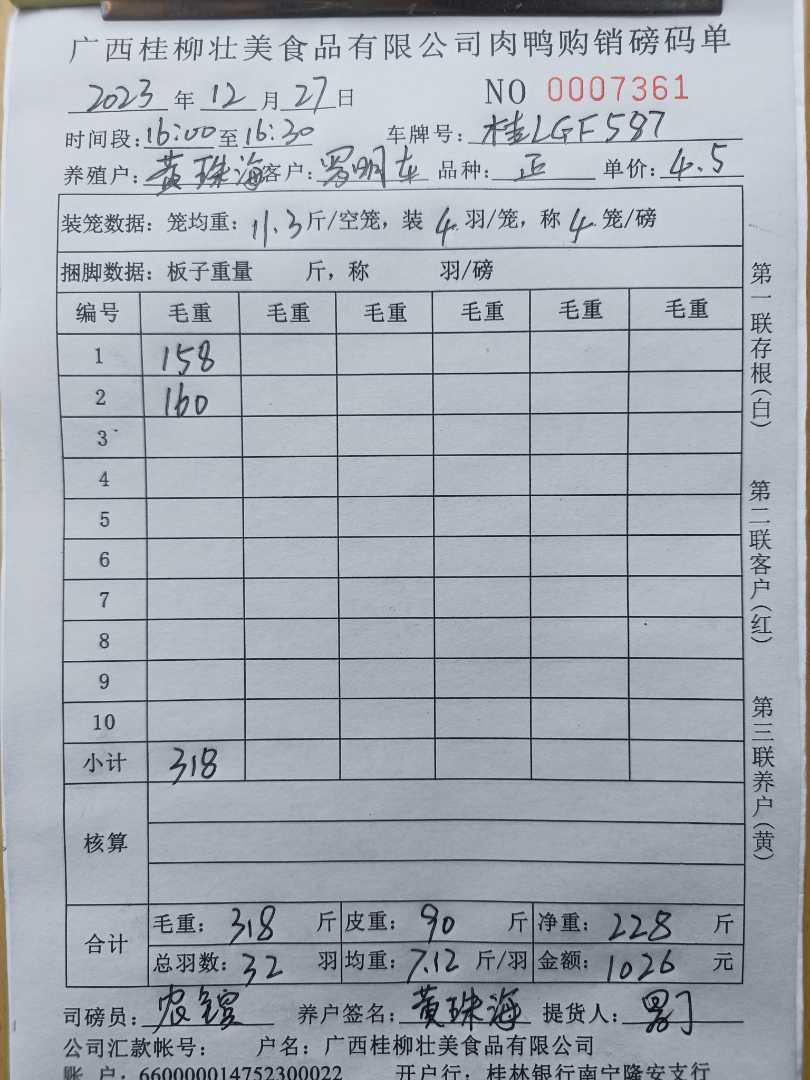 广西桂柳壮美食品有限公司肉鸭购销磅码单
2023 年 12 月 27 日 NO 0007361
时间段: 16:00 至 16:30 车牌号: 桂LGF587
养殖户: 黄珠海 客户: 罗明车 品种: 正 单价: 4.5
装笼数据: 笼均重: 11.3 斤/空笼, 装 4 羽/笼, 称 4 笼/磅
捆脚数据: 板子重量 斤, 称 羽/磅
编号 毛重 毛重 毛重 毛重 毛重 毛重
1 158
2 160
3
4
5
6
7
8
9
10
小计 318
核算
合计 毛重: 318 斤 皮重: 90 斤 净重: 228 斤
总羽数: 32 羽 均重: 7.12 斤/羽 金额: 1026 元
司磅员: 农 养户签名: 黄珠海 提货人:
公司汇款帐号: 户名: 广西桂柳壮美食品有限公司
账 户: 660000014752300022 开户行: 桂林银行南宁隆安支行
第一联存根(白)
第二联客户(红)
第三联养户(黄)